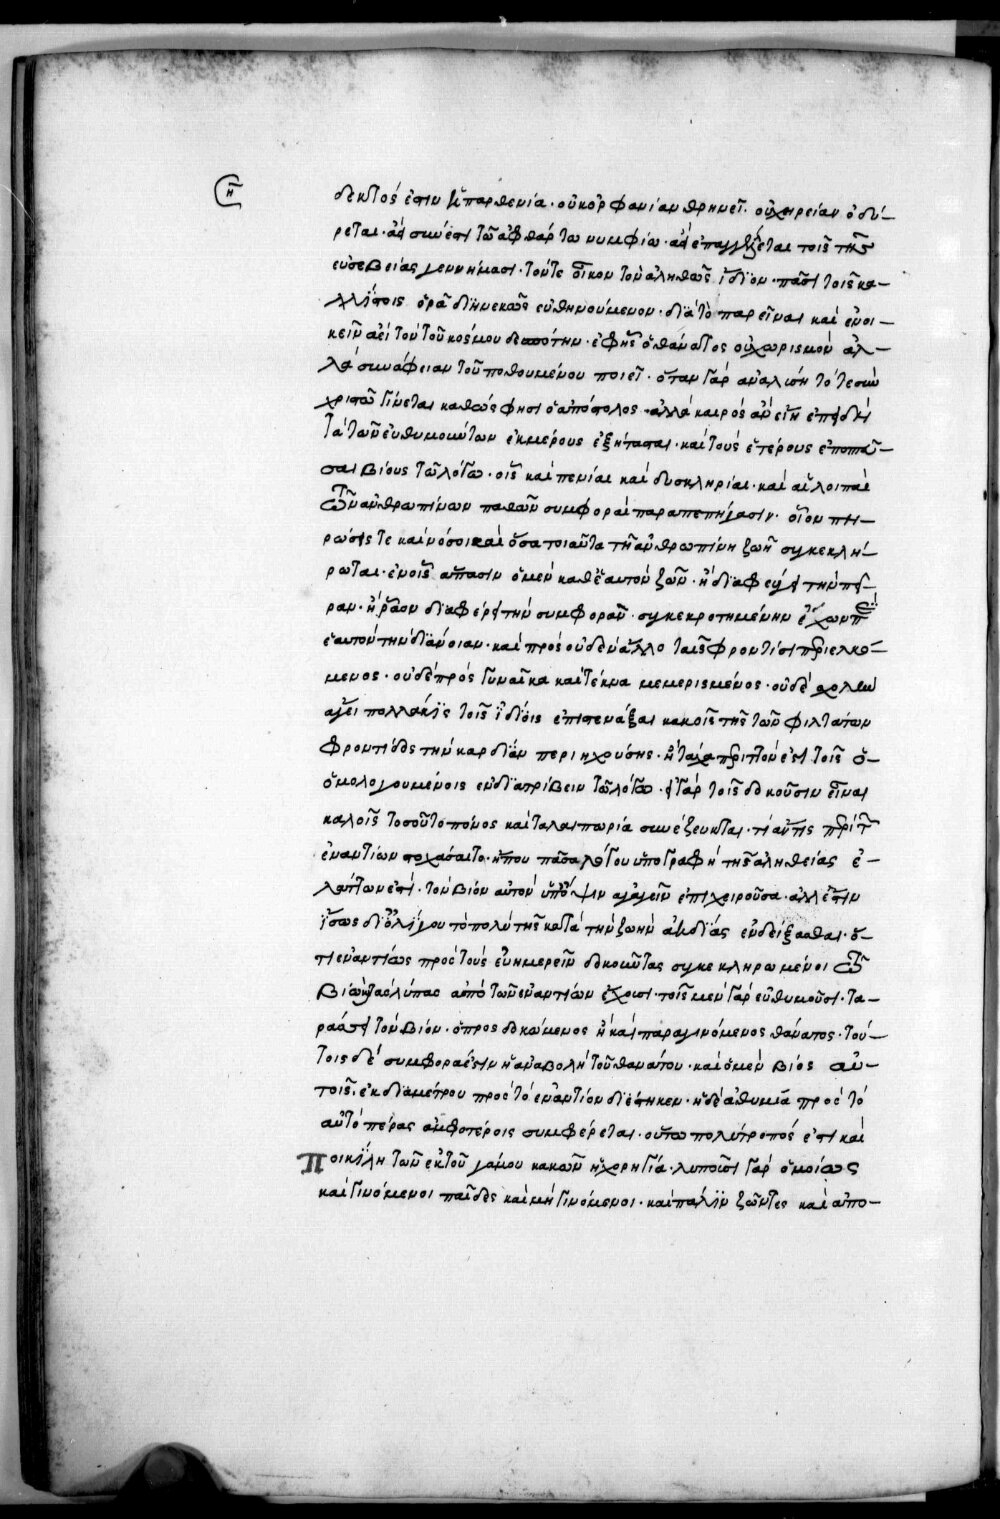 η
δεκτός ἐστιν ἡ παρθενία· οὐκ ὀρφανίαν θρηνεῖ· οὐ χηρείαν ὀδύ-
ρεται· ἀεὶ σύνεστι τῶ ἀφθάρτω νυμφίω· ἀεὶ ἐπαγάλλεται τοῖς τῆς
εὐσεβείας γεννήμασι· τόν τε οἶκον τὸν ἀληθῶς ἴδιον· πᾶσι τοῖς κα-
λλίστοις ὁρᾶ διηνεκῶς εὐθηνούμενον· διὰ τὸ παρεῖναι καὶ ἐνοι-
κεῖν ἀεὶ τὸν τοῦ κόσμου δεσπότην· ἐφ' ἧς ὁ θάνατος οὐ χωρισμὸν ἀλ-
λὰ συνάφειαν τοῦ ποθουμένου ποιεῖ· ὅταν γὰρ ἀναλύση τότε σὺν
χριστῶ γίνεται καθώς φησι ὁ ἀπόστολος· ἀλλὰ καιρὸς ἂν εἴη ἐπειδὴ
τὰ τῶν εὐθυμούντων ἐκ μέρους ἐξήτασται· καὶ τοὺς ἑτέρους ἐποπτεῦ-
σαι βίους τῶ λόγω· οἷς καὶ πενίαι καὶ δυσκληρίαι· καὶ αἱ λοιπαὶ
τῶν ἀνθρωπίνων παθῶν συμφοραὶ παραπεπήγασιν· οἷον πη-
ρώσεις τε καὶ νόσοι καὶ ὅσα τοιαῦτα τῆ ἀνθρωπίνη ζωῆ συγκεκλή-
ρωται· ἐν οἷς ἅπασιν ὁ μὲν καθ' ἑαυτὸν ζῶν· ἢ διαφεύγει τὴν πεῖ-
ραν· ἢ ῥᾶον διαφέρει τὴν συμφοράν· συγκεκροτημένην ἔχων πρὸς
ἑαυτὸν τὴν διάνοιαν· καὶ πρὸς οὐδὲν ἄλλο ταῖς φροντίσι περιελκό-
μενος· ὁ δὲ πρὸς γυναῖκα καὶ τέκνα μεμερισμένος· οὐδὲ σχολὴν
ἄγει πολλάκις τοῖς ἰδίοις ἐπιστενάξαι κακοῖς τῆς τῶν φιλτάτων
φροντίδος τὴν καρδίαν περιηχούσης· ἢ τάχα περιττόν ἐστι τοῖς ὁ-
ὁμολογουμένοις ἐνδιατρίβειν τῶ λόγω· εἰ γὰρ τοῖς δοκοῦσιν εἶναι
καλοῖς τοσοῦτο πόνος καὶ ταλαιπωρία συνέζευκται· τί ἄν τις περὶ τῶν
ἐναντίων στοχάσαιτο· ἤπου πᾶσα λόγου ὑπογραφὴ τῆς ἀληθείας ἐ-
λάττων ἐστί· τὸν βίον αὐτὸν ὑπ' ὄψιν ἀγαγεῖν ἐπιχειροῦσα· ἀλλ' ἔστιν
ἴσως δι' ὀλίγου τὸ πολὺ τῆς κατὰ τὴν ζωὴν ἀηδίας ἐνδείξασθαι· ὅ-
τι ἐναντίως πρὸς τοὺς εὐημερεῖν δοκοῦντας συγκεκληρωμένοι τῶ
βίω καὶ τὰς λύπας ἀπὸ τῶν ἐναντίων ἔχουσι· τοῖς μὲν γὰρ εὐθυμοῦσι· τα-
ράσσει τὸν βίον· ὁ προσδοκώμενος ἢ καὶ παραγινόμενος θάνατος· τού-
τοις δὲ συμφορά ἐστιν ἡ ἀναβολὴ τοῦ θανάτου· καὶ ὁ μὲν βίος αὐ-
τοῖς· ἐκ διαμέτρου πρὸς τὸ ἐναντίον διέστηκεν· ἡ δὲ ἀθυμία πρὸς τὸ
αὐτὸ πέρας ἀμφοτέροις συμφέρεται· οὕτω πολύτροπός ἐστι καὶ
ποικίλη τῶν ἐκ τοῦ γάμου κακῶν ἡ χορηγία· λυποῦσι γὰρ ὁμοίως
καὶ γινόμενοι παῖδες καὶ μὴ γινόμενοι· καὶ πάλιν ζῶντες καὶ ἀπο-